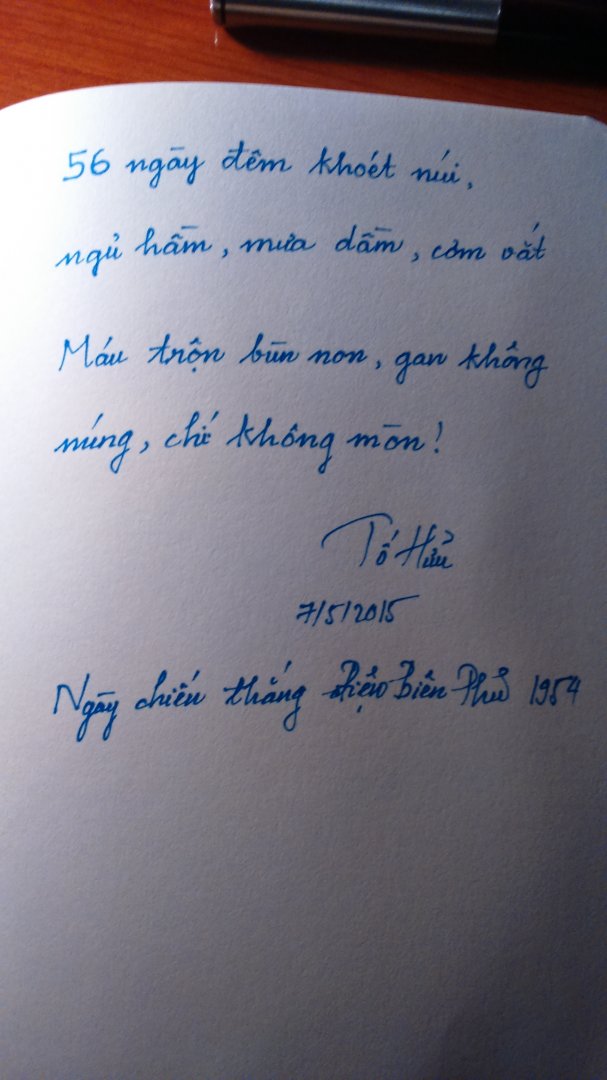 56 ngày đêm khoét núi,
ngủ hầm, mưa dầm, cơm vắt
Máu trộn bùn non, gan không
núng, chí không mòn!
Tố Hữu
7/5/2015
Ngày chiến thắng Điện Biên Phủ 1954